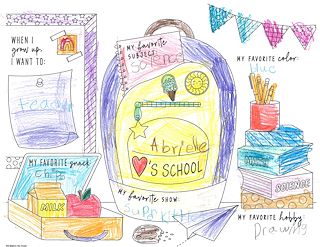 WHEN I
GROW UP,
I WANT TO:
teach
MY FAVORITE
SUBJECT:
Science
MY FAVORITE COLOR:
blue
MY FAVORITE SNACK
Chips
MILK
'S SCHOOL
MY FAVORITE SHOW:
SCIENCE
MY FAVORITE HOBBY
Drawing